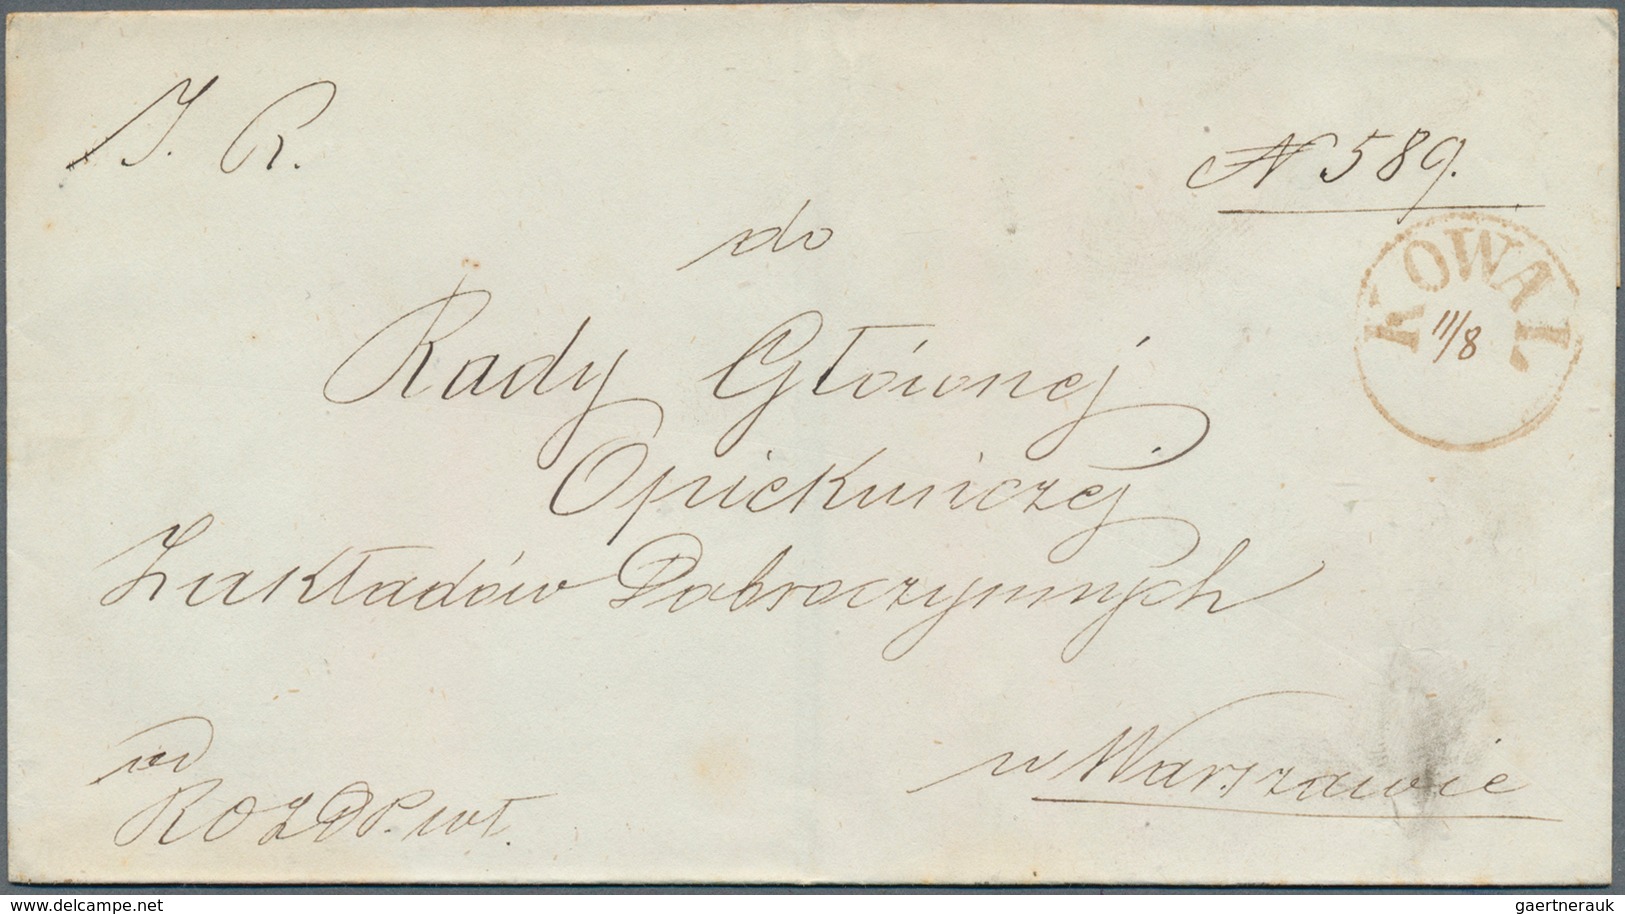 J. R.
N 589.
do
KOWAL
11/8
Rady Głównej
Opiekuńczej
Zakładów Dobroczynnych
w Warszawie
od
ROZDP.wł.
delcampe.net
gaertnerauk